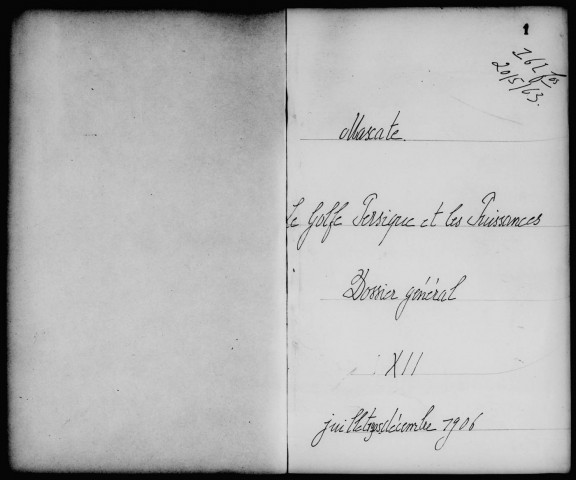 1
162 fos
20/5/63.
Mascate.
Le Golfe Persique et les Puissances
Dossier général
XII
juillet décembre 1906